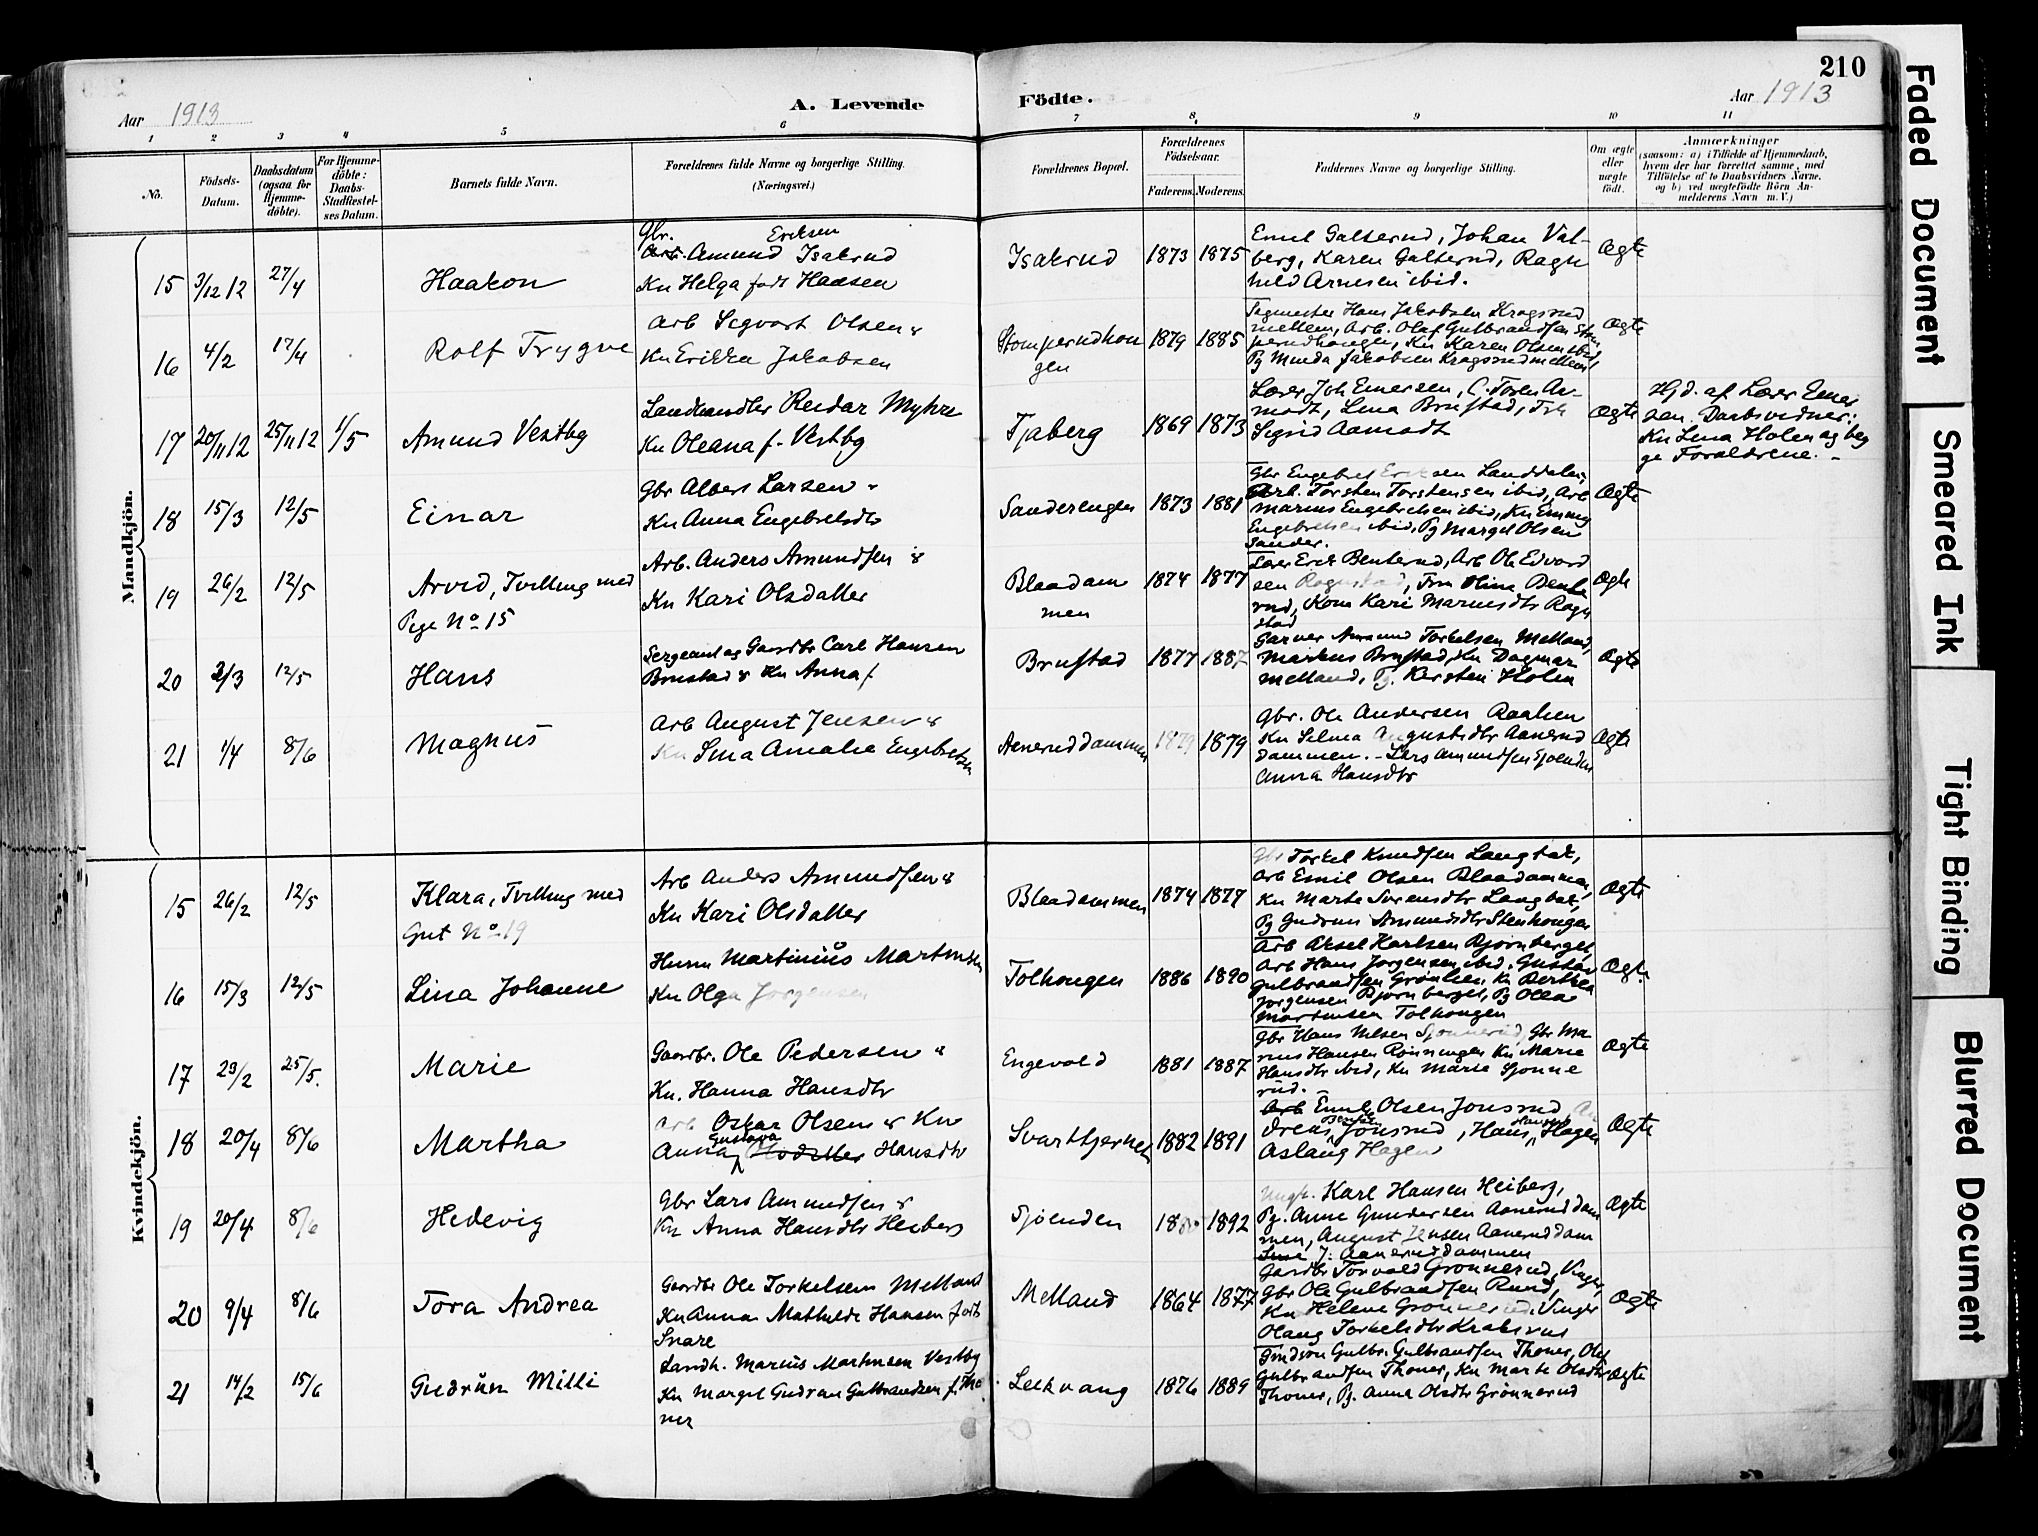 210
Aar 1913
A. Levende
Födte.
Aar 1913
1 2 3 4 5 6 7 8. 9 10 11
No.
Födsels-
Datum.
Daabsdatum
(ogsaa for
Hjemme-
döbte).
For Hjemme-
döbte:
Daabs-
Stadfæstel-
ses Datum.
Barnets fulde Navn.
Forældrenes fulde Navne og borgerlige Stilling.
(Næringsvei.)
Forældrenes Bopæl.
Forældrenes
Födselsaar.
Faderens. Moderens.
Faddernes Navne og borgerlige Stilling.
Om ægte
eller
uægte
födt.
Anmærkninger
(saasom: a) i Tilfælde af Hjemmedaab,
hvem der har forrettet samme, med
Tilföielse af to Daabsvidners Navne.
og b) ved uægtefödte Börn An-
melderens Navn m. V.)
Mandkjön.
15 3/12 12 27/4
Haakon
Gbr. Eriksen
Arb. Amund Isakrud
Kn Helga født Hansen
Isakrud
1873 1875
Emil Galterud, Johan Val-
berg, Karen Galterud, Ragn
hild Arnesen ibid.
Ægte
16 4/2 17/4
Rolf Trygve
Arb Sigvart Olsen &
Kn Erikka Jakobsen
Stomperudhou
gen
1879 1885
Sagmester Hans Jakobsen Kragsrud
mellem, Arb. Olaf Gulbrandsen Stom
perudhougen, Kn Karen Olsen ibid,
Pg Minda Jakobsen Kragsrudmellem
Ægte
17 20/11 12 25/11 12 1/5
Amund Vestby
Landhandler Reidar Myhre
Kn Oleana f. Vestby
Tjaberg
1869 1873
Lærer Joh Emersen, C. Torn Aa-
modt, Lina Brustad, Frk
Sigrid Aamodt
Ægte
Hjd. af Lærer Emer
sen. Daabsvidner:
Kn Lina Holen og beg
ge Forældrene. -
18 15/3 12/5
Einar
Gbr Albert Larsen -
Kn Anna Engebretsdtr
Sanderengen
1873 1881
Gbr Engebret Eriksen Landdalen,
Arb. Torsten Torstensen ibid, Arb
Marius Engebretsen ibid, Kn Emma
Engebretsen ibid, Pg Margit Olsen
Sander.
Ægte
19 26/2 12/5
Arvid, Tvilling med
Pige No 15
Arb. Anders Amundsen &
Kn Kari Olsdatter
Blaadam
men
1874 1877
Lærer Erik Benterud, Arb Ole Edvard
sen Ragnstad, Fru Olina Bente
rud, Kone Kari Mariusdtr Ragn
stad
Ægte
20 2/3 12/5
Hans
Sergeant og Gaardbr Carl Hansen
Brustad & Kn Anna f
Brustad
1877 1887
Garver Amund Torkelsen Melland,
Markus Brustad, Kn Dagmar
Melland, Pg. Kirsten Holen
Ægte
21 1/4 8/6
Magnus
Arb August Jensen &
Kn Lina Amalia Engebretsen
Aanerüddammen
1879 1879
Gbr. Ole Andersen Raaken
Kn Selma Augustsdtr Aanerud
dammen. - Lars Amundsen Sjøenden
Anna Hansdtr
Ægte
Kvindekjön.
15 26/2 12/5
Klara, Tvilling med
Gut No 19
Arb Anders Amundsen &
Kn Kari Olsdatter
Blaadammen
1874 1877
Gbr Torkel Knudsen Langbak,
Arb Emil Olsen Blaadammen,
Kn Marte Svensdtr Langbak,
Pg Gudrun Amundsdtr Stenhougen
Ægte
16 15/3 12/5
Lina Johanne
Husm Martinius Martinsen
Kn Olga Jorgensen
Tolhougen
1886 1890
Arb Aksel Karlsen Bjørnberget,
Arb Hans Jorgensen ibid, Gustav
Gulbrandsen Grønlien, Kn Berthea
Jorgensen Bjørnberget, Pg Olea
Martinsen Tolhougen
Ægte
17 23/2 25/5.
Marie
Gaardbr. Ole Pedersen &
Kn. Hanna Hansdtr
Engevold
1881 1887
Gbr Hans Nilsen Sjønnerud, Gbr Ma
rius Hansen Rønningen Kn Marie
Hansdtr ibid, Kn Marie Sjønne
rüd.
Ægte
18 20/4 8/6
Martha
Arb Oskar Olsen & Kn
Gustava
Anna Hansdtr
Svarttjernet
1882 1891
Arb Emil Olsen Jonsrud An
dreas Jonsrud, Hans Hagen
Aslaug Hagen
Ægte
19 20/4 8/6
Hedevig
Gbr Lars Amundsen &
Kn Anna Hansdtr Heiberg
Sjøenden
1892
Ungk. Karl Hansen Heiberg,
Pg. Anne Gundersen Aanerud dam
men, August Jensen Aaneruddam
Lina J. Aaneruddammen
Ægte
20 9/4 8/6
Tora Andrea
Gaardbr Ole Torkelsen Melland
Kn Anna Mathilde Hansen født
Snare
Melland
1864 1877
Gaardbr Torvald Grønnerud, Vinger,
Gbr Ole Gulbrandsen Rund,
Kn Helene Grønnerud, Vinger
Olaug Torkelsdtr Krabsrud
Ægte
21 14/2 15/6
Gudrün Milli
Landh. Marius Martinsen Vestby
Kn Margit Gudrun Gulbrandsen f. Tho
ner
Leikvang
1876 1889
Gulbr. Gulbrandsen Thoner, Olaf
Gulbrandsen Thoner, Kn Marte Olsdtr
Thoner, Pg. Anna Olsdtr Grønnerud
Ægte
Faded Document
Smeared Ink
Tight Binding
Blurred Document